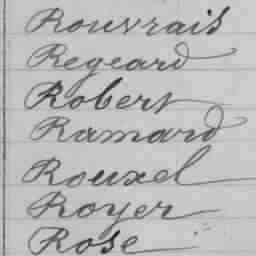 Rouvrais
Regeard
Robert
Ramard
Rouxel
Royer
Rose